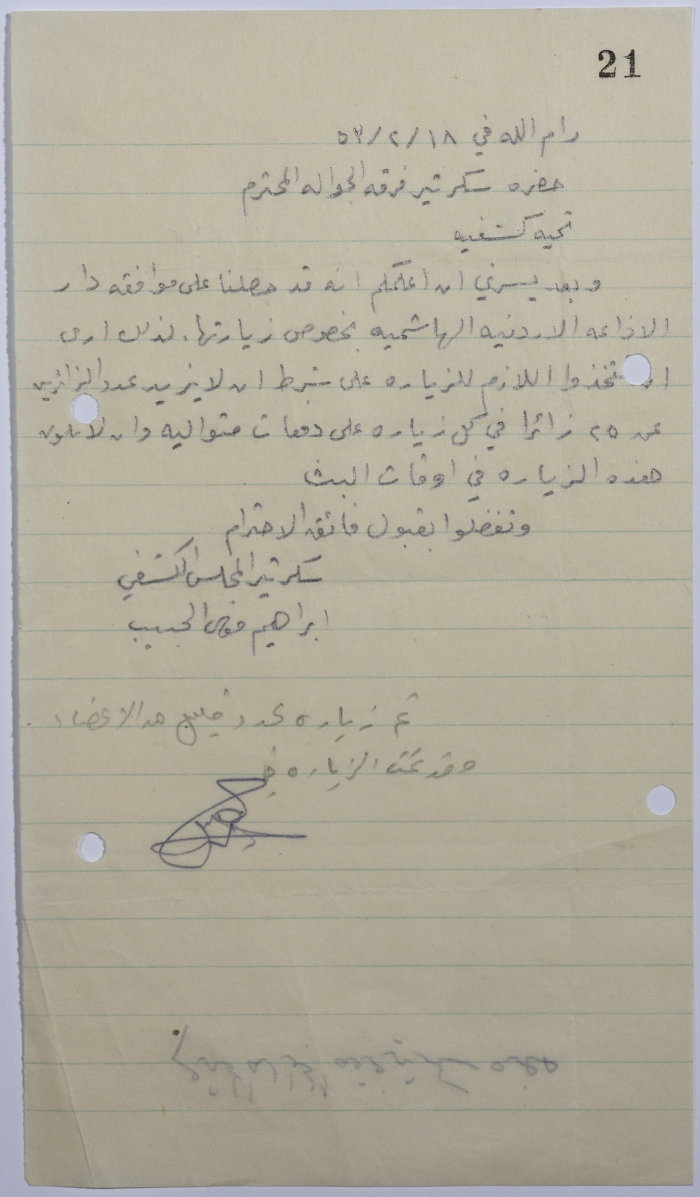 21
رام الله في ١٨/٢/٥٣
حضره سكرتير فرقه الجواله المحترم
تحيه كشفيه
وبعد يسرني ان اعلمكم انه قد حصلنا على موافقه دار
الاذاعه الاردنيه الهاشميه بخصوص زيارتها. لذلك ارى
ان تتخذوا اللازم للزياره على شرط ان لا يزيد عدد الزائرين
عن ٢٥ زائرا في كل زياره على دفعات متواليه وان لا تكون
هذه الزياره في اوقات البث
وتفضلوا بقبول فائق الاحترام
سكرتير المجلس الكشفي
ابراهيم الحبيب
تم زياره عدد قليل من الاعضاء.
وقد تمت الزياره في